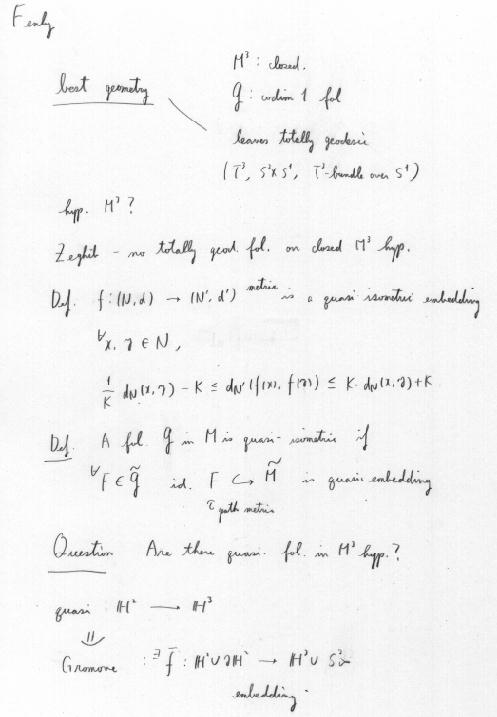 Fenly
M³ : closed.
best geometry
𝒢 : codim 1 fol
leaves totally geodesic
(T³, S²×S¹, T²-bundle over S¹)
hyp. M³ ?
Zeghib - no totally geod. fol. on closed M³ hyp.
Def. f : (N, d) → (N', d') metric is a quasi isometric embedding
∀x, y ∈ N,
1/K d_N(x, y) - K ≤ d_N'(f(x), f(y)) ≤ K · d_N(x, y) + K
Def. A fol. 𝒢 in M is quasi-isometric if
∀F ∈ 𝒢̃ id. F ↪ M̃ is quasi embedding
path metric
Question Are there quasi. fol. in M³ hyp. ?
quasi ℍ² → ℍ³
⇓
Gromov : ∃ f̄ : ℍ² ∪ ∂ℍ² → ℍ³ ∪ S²∞
embedding.